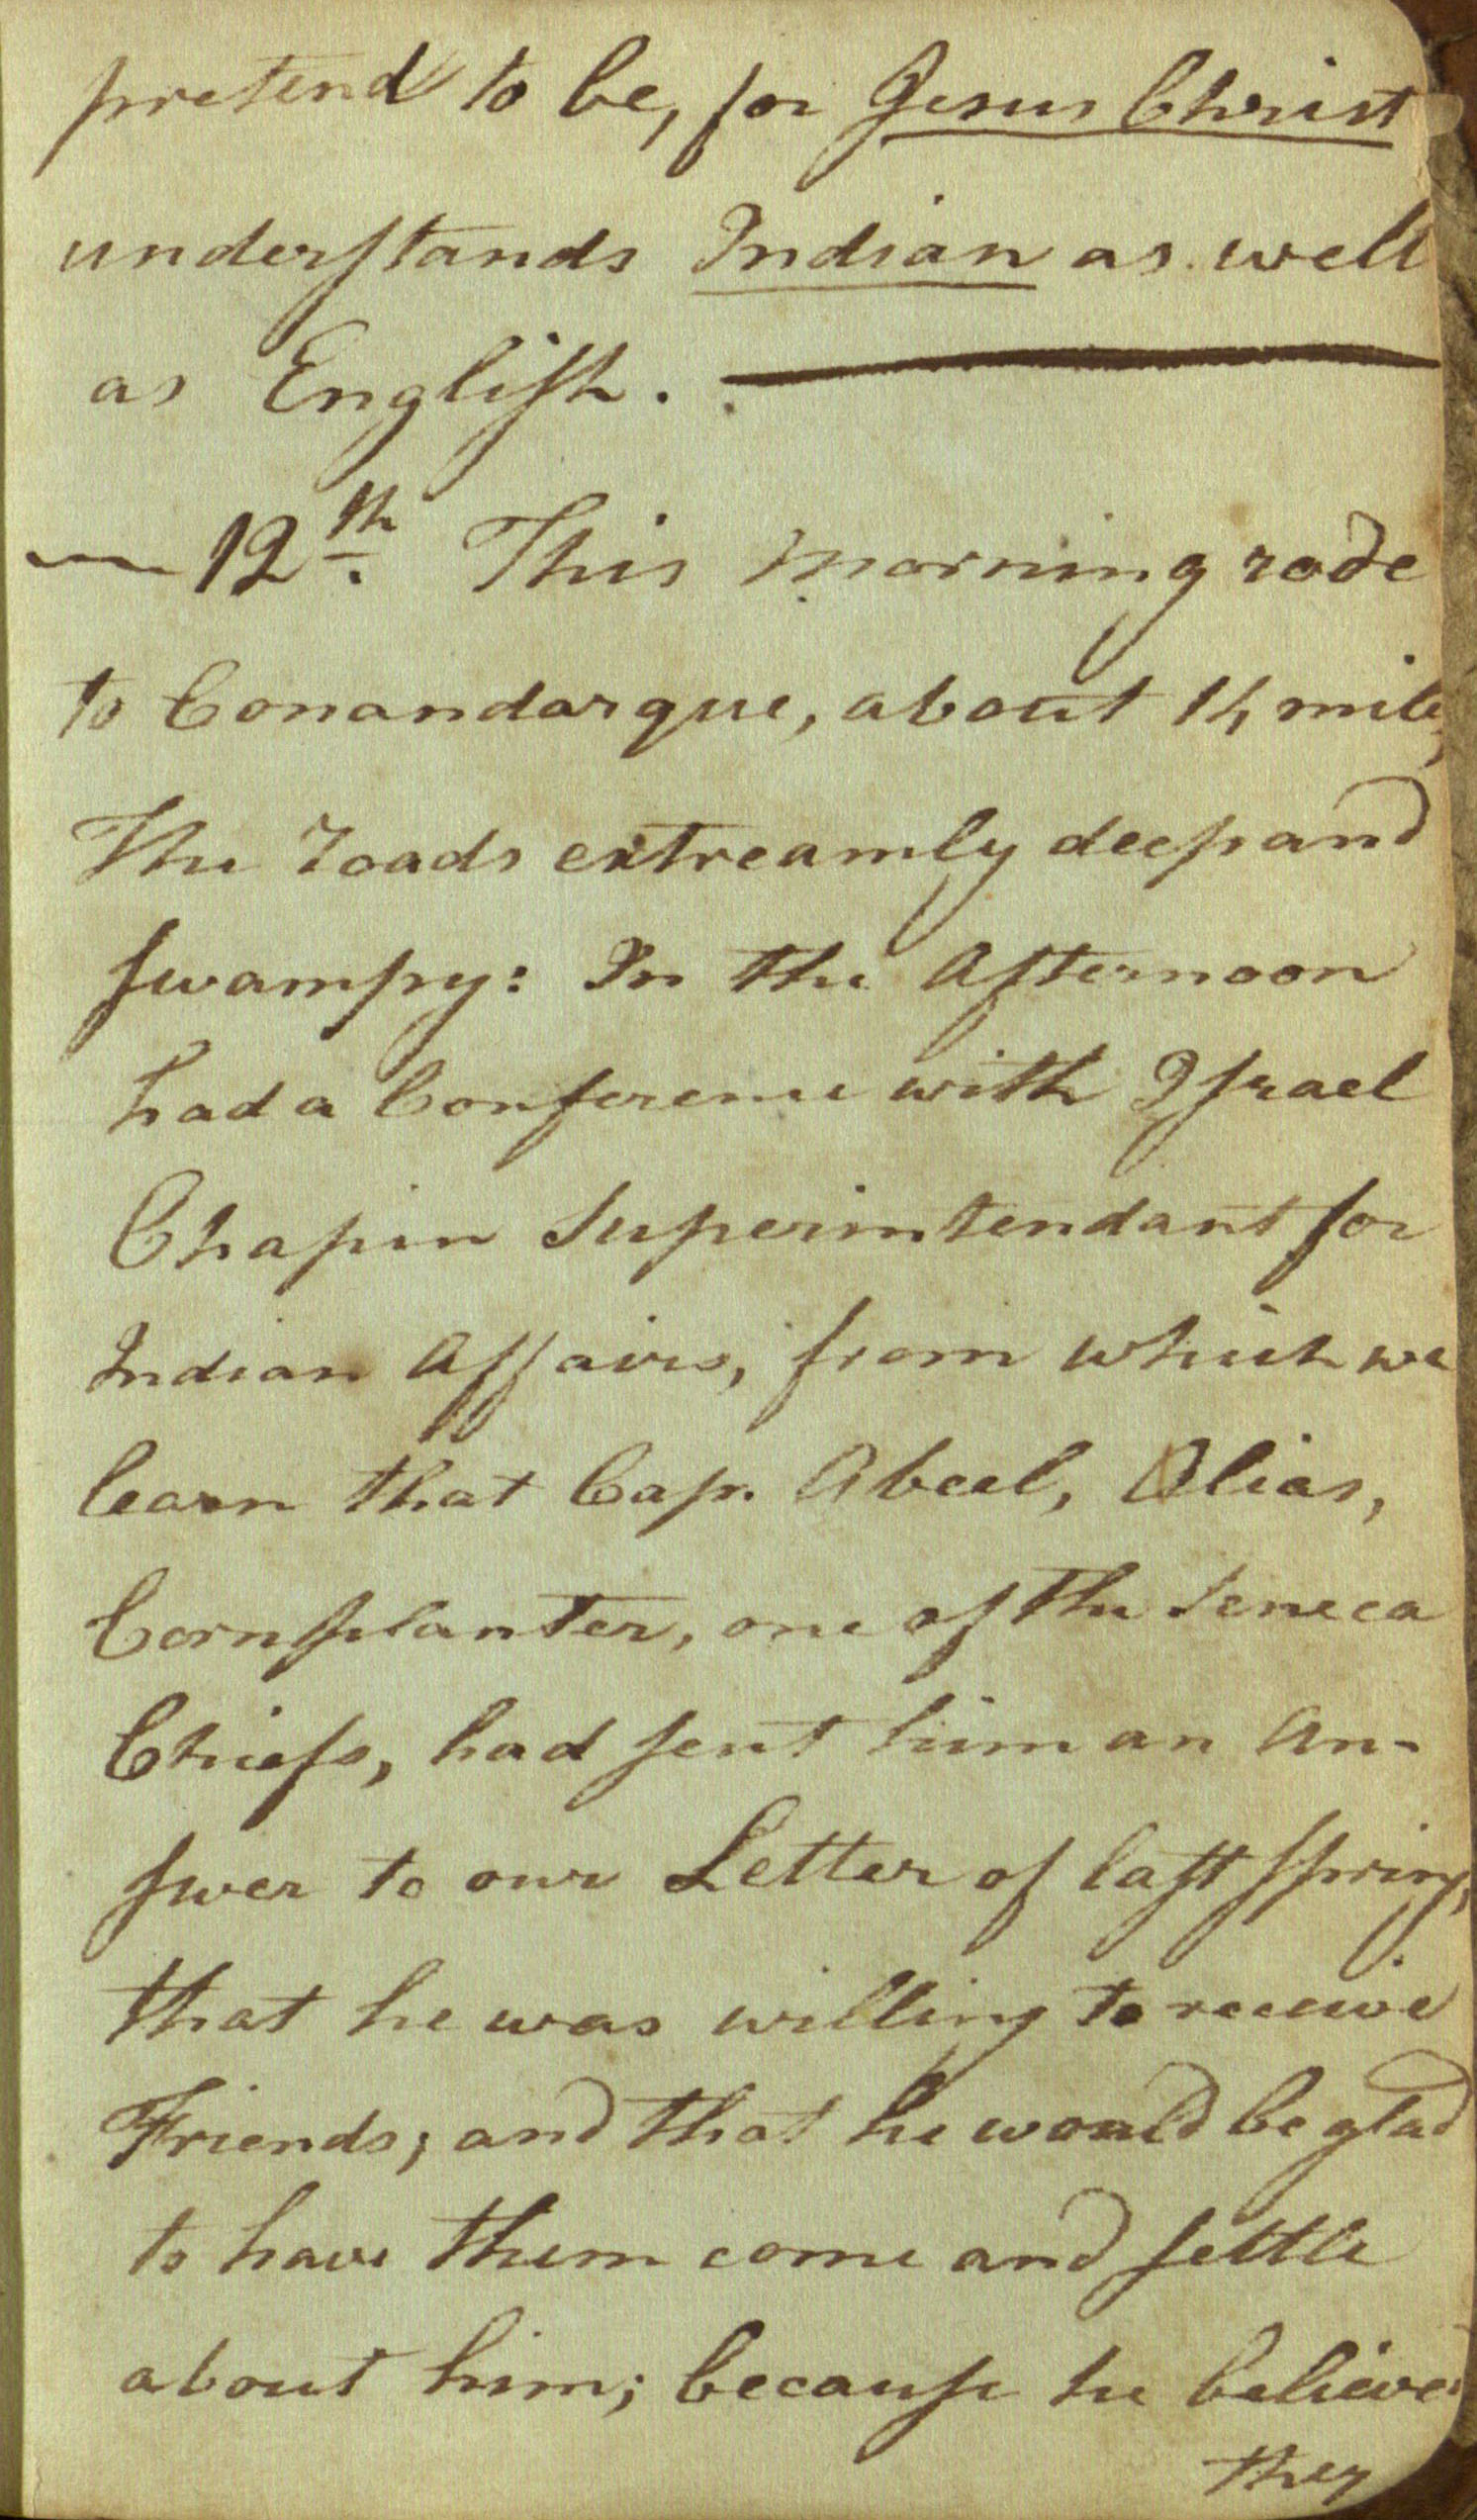 pretend to be, for Jesus Christ
understands Indian as well
as English.
— 12th. This morning rode
to Conandarque, about 14 miles,
The roads extreamly deep and
swampy: In the Afternoon
had a Conference with Israel
Chapin Superintendant for
Indian Affairs, from which we
learn that Cap. Abeel, Alias,
Cornplanter, one of the Seneca
Chiefs, had sent him an An-
swer to our Letter of last spring,
that he was willing to receive
Friends; and that he would be glad
to have them come and settle
about him; because he believed
they